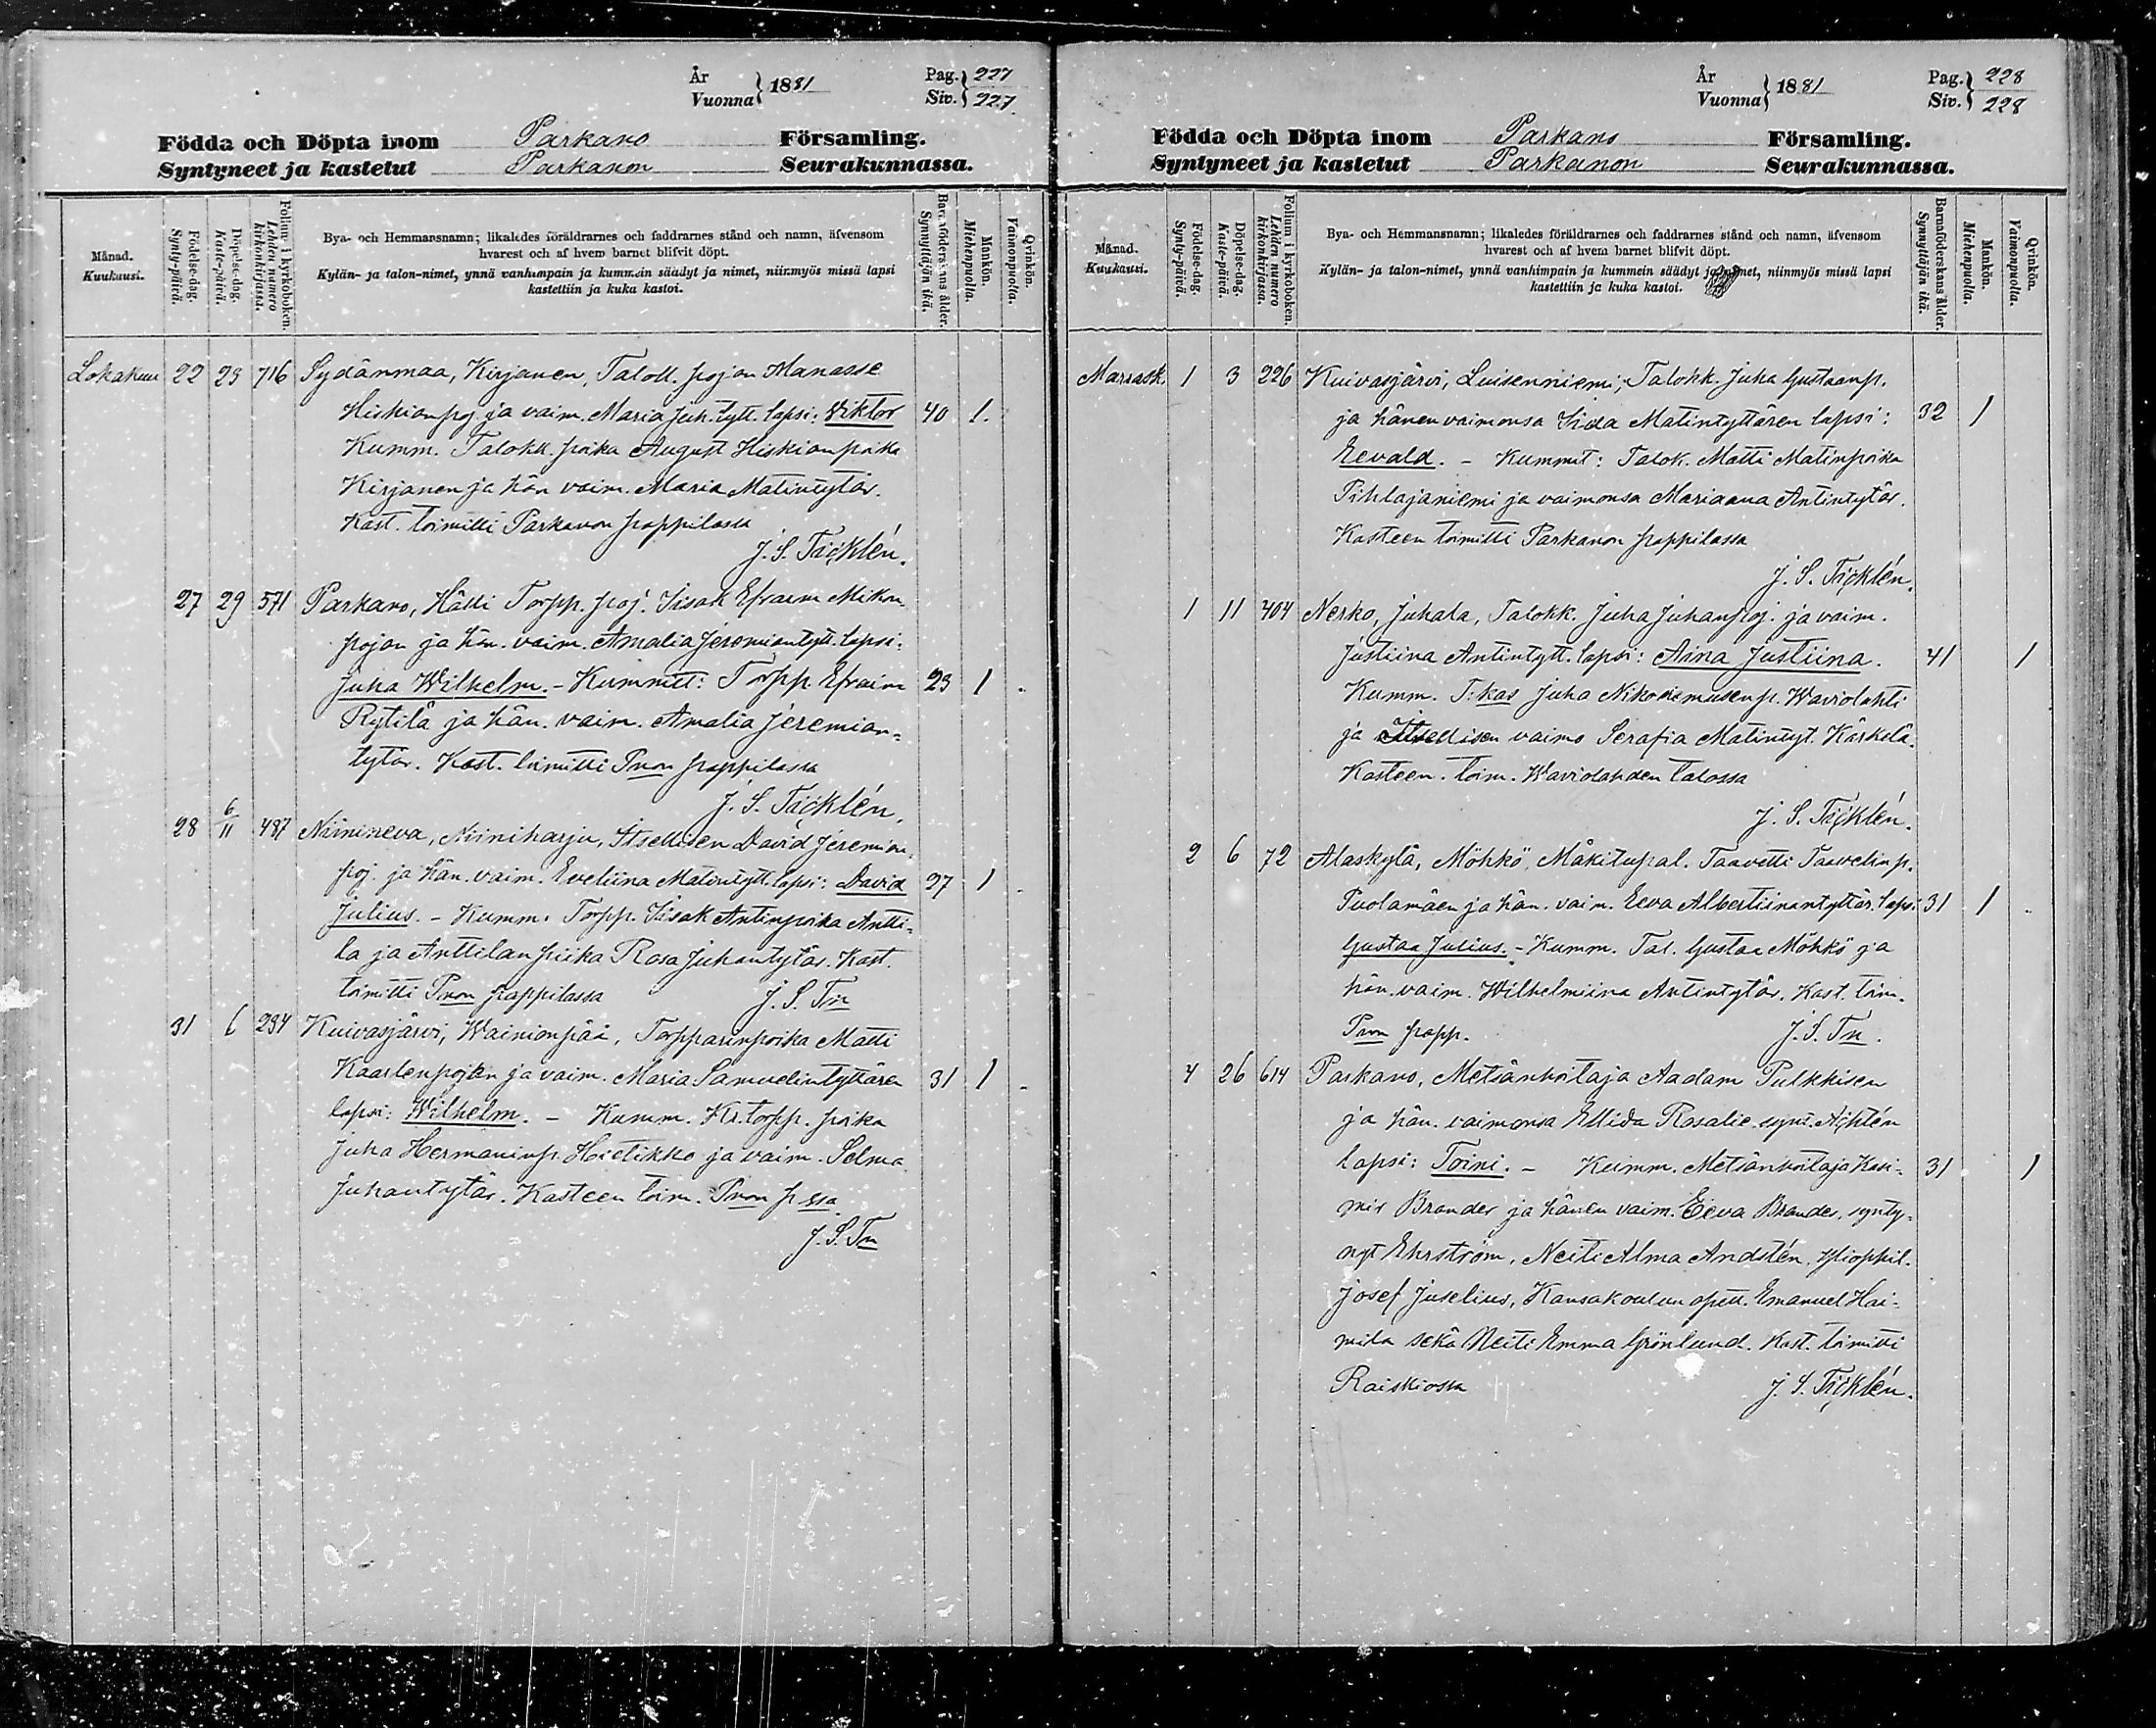 År
Vuonna } 1881
Pag. } 227
Siv. } 227
Födda och Döpta inom Parkano Församling.
Syntyneet ja kastetut Parkanon Seurakunnassa.
Månad.
Kuukausi.
Födelse-dag.
Synty-päivä.
Döpelse-dag.
Kaste-päivä.
Folium i kyrkoboken.
Lehden numero kirkonkirjassa.
Bya- och Hemmansnamn; likaledes föräldrarnes och faddrarnes stånd och namn, äfvensom
hvarest och af hvem barnet blifvit döpt.
Kylän- ja talon-nimet, ynnä vanhimpain ja kummein säädyt ja nimet, niinmyös missä lapsi
kastettiin ja kuka kastoi.
Barnföderskans ålder.
Synnyttäjän ikä.
Mankön.
Miehenpuolia.
Qvinkön.
Vaimonpuolia.
Lokakuu 22 23 716 Sydänmaa, Kirjanen, Taloll. pojan Manasse
Hiskianpoj. ja vaim. Maria Juh. tytt. lapsi: Viktor 40 1.
Kumm. Talokk. poika August Hiskianpoika
Kirjanen ja hän vaim. Maria Matintytär.
Kast. toimitti Parkanon pappilassa
J. S. Täcklén.
27 29 571 Parkano, Hätti Torpp. poj. Iisak Efraim Mikon
pojan ja hän. vaim. Amalia Jeremiantytt. lapsi:
Juha Wilhelm. - Kummit: Torpp. Efraim 23 1
Rytilä ja hän. vaim. Amalia Jeremian=
tytär. Kast. toimitti Pnon pappilassa
J. S. Täcklén.
28 6/11 487 Niinineva, Niiniharju, Itsellisen David Jeremian
poj. ja hän. vaim. Eveliina Matintytt. lapsi: David 27 1
Julius. - Kumm: Torpp. Iisak Antinpoika Antti=
la ja Anttilan piika Rosa Juhantytär. Kast.
toimitti Pnon pappilassa J. S. Tn
31 6 234 Kuivasjärvi, Wainionpää, Torpparinpoika Matti
Kaarlenpojan ja vaim. Maria Samuelintyttären 31 1
lapsi: Wilhelm. - Kumm. Kr. torpp. poika
Juha Hermaninp. Hietikko ja vaim. Selma
Juhantytär. Kasteen toim. Pnon p ssa
J. S. Tn
År
Vuonna } 1881
Pag. } 228
Siv. } 228
Födda och Döpta inom Parkano Församling.
Syntyneet ja kastetut Parkanon Seurakunnassa.
Månad.
Kuukausi.
Födelse-dag.
Synty-päivä.
Döpelse-dag.
Kaste-päivä.
Folium i kyrkoboken.
Lehden numero kirkonkirjassa.
Bya- och Hemmansnamn; likaledes föräldrarnes och faddrarnes stånd och namn, äfvensom
hvarest och af hvem barnet blifvit döpt.
Kylän- ja talon-nimet, ynnä vanhimpain ja kummein säädyt ja nimet, niinmyös missä lapsi
kastettiin ja kuka kastoi.
Barnaföderskans ålder.
Synnyttäjän ikä.
Mankön.
Miehenpuolia.
Qvinkön.
Vaimonpuolia.
Marrask. 1 3 226 Kuivasjärvi, Luisenniemi, Talokk. Juha Gustaanp.
ja hänen vaimonsa Iida Matintyttären lapsi: 32 1
Eevald. - Kummit: Talok. Matti Matinpoika
Pihlajaniemi ja vaimonsa Mariaana Antintytär.
Kasteen toimitti Parkanon pappilassa
J. S. Täcklén.
1 11 404 Nerko, Juhala, Talokk. Juha Juhanpoj. ja vaim.
Justiina Antintytt. lapsi: Aina Justiina. 41 1
Kumm. T:kas Juha Nikodemusenp. Waviolahti
ja Itsellisen vaimo Serafia Matintyt. Kärkelä.
Kasteen toim. Waviolahden talossa
J. S. Täcklén.
2 6 72 Alaskylä, Möhkö, Mäkitupal. Taavetti Taavelinp.
Puolamäen ja hän. vaim. Eeva Albertiinantyttär. lapsi 31 1
Gustaa Julius. - Kumm. Tal. Gustaa Möhkö ja
hän. vaim. Wilhelmiina Antintytär. Kast. toim.
Pnon papp. J. S. Tn.
4 26 614 Parkano, Metsänhoitaja Aadam Pulkkisen
ja hän. vaimonsa Ellida Rosalie synt.
lapsi: Toini. - Kumm. Metsänhoitaja Kasi= 31 1
mir Brander ja hänen vaim. Eeva Brander, synty=
nyt Ehrström, Neiti Alma Andstén, Ylioppil.
Josef Juselius, Kansakoulun opett. Emanuel Hai=
mila sekä Neiti Emma Grönlund. Kast. toimitti
Raiskiossa J. S. Täcklén.